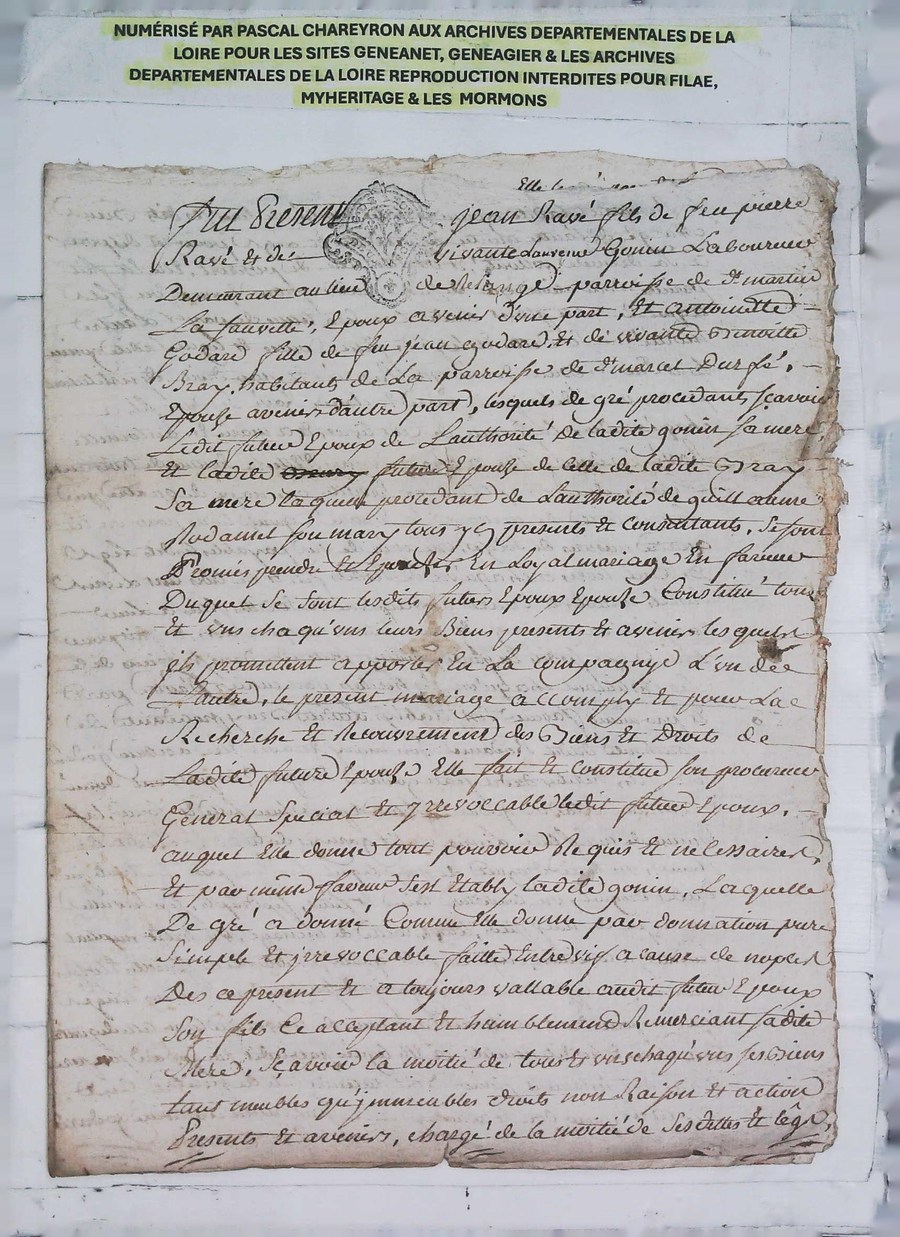 NUMÉRISÉ PAR PASCAL CHAREYRON AUX ARCHIVES DEPARTEMENTALES DE LA
LOIRE POUR LES SITES GENEANET, GENEAGIER & LES ARCHIVES
DEPARTEMENTALES DE LA LOIRE REPRODUCTION INTERDITES POUR FILAE,
MYHERITAGE & LES MORMONS
Fut Present Jean Ravé fils de feu pierre
Ravé et de vivante Gonin Laboureur
Demeurant au lieu de parroisse de St martin
La sauvette, Epoux avenir d'une part, Et antoinette
Godard fille de feu jean Godard, et de vivante Benoitte
Bray, habitants de La parroisse de St marcel Durfé,
Epouse avenir d'autre part, lesquels de gré procedants scavoir
Ledit futur Epoux de L'authorité De ladite gonin sa mere,
Et ladite future Epouse de celle de ladite Bray
Sa mere laquelle procedant de L'authorité de guillaume
Rodamel son mary tous yci presents et consentants, se sont
Promis prendre et Epouser En Loyal mariage En faveur
Duquel se sont lesdits futurs Epoux Epouse Constitué tous
Et uns chaqu'uns leurs Biens presents et avenir lesquels
jls promettent apporter En La compagnye L'un de
L'autre, le present mariage accomply et pour La
Recherche et Recouvrement des Biens et Droits de
Ladite future Epouse Elle fait et constitue son procureur
General Special et yrrevoccable ledit futur Epoux,
auquel Elle donne tout pouvoir Requis et necessaire,
Et par même faveur s'est Etably ladite gonin, Laquelle
De gré a donné Comme Elle donne par donnation pure
Simple et jrrevoccable faitte Entre vifs a cause de nopces
Des ce present et a toujours vallable audit futur Epoux
Son fils ce acceptant et humblement Remerciant sadite
Mere, Sçavoir la moitié de tous et uns chaqu'uns ses Biens
tant meubles qu'jmmeubles droits nom Raison et action
Presents et avenirs, chargé de la moitié de Ses dettes et